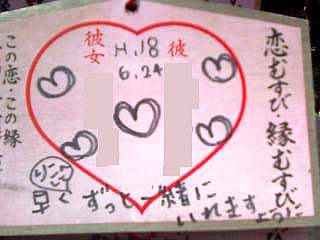 恋むすび・縁むすび
彼女 H.18 彼
6.24
この恋・この縁
早く ずっと一緒に
いれますように